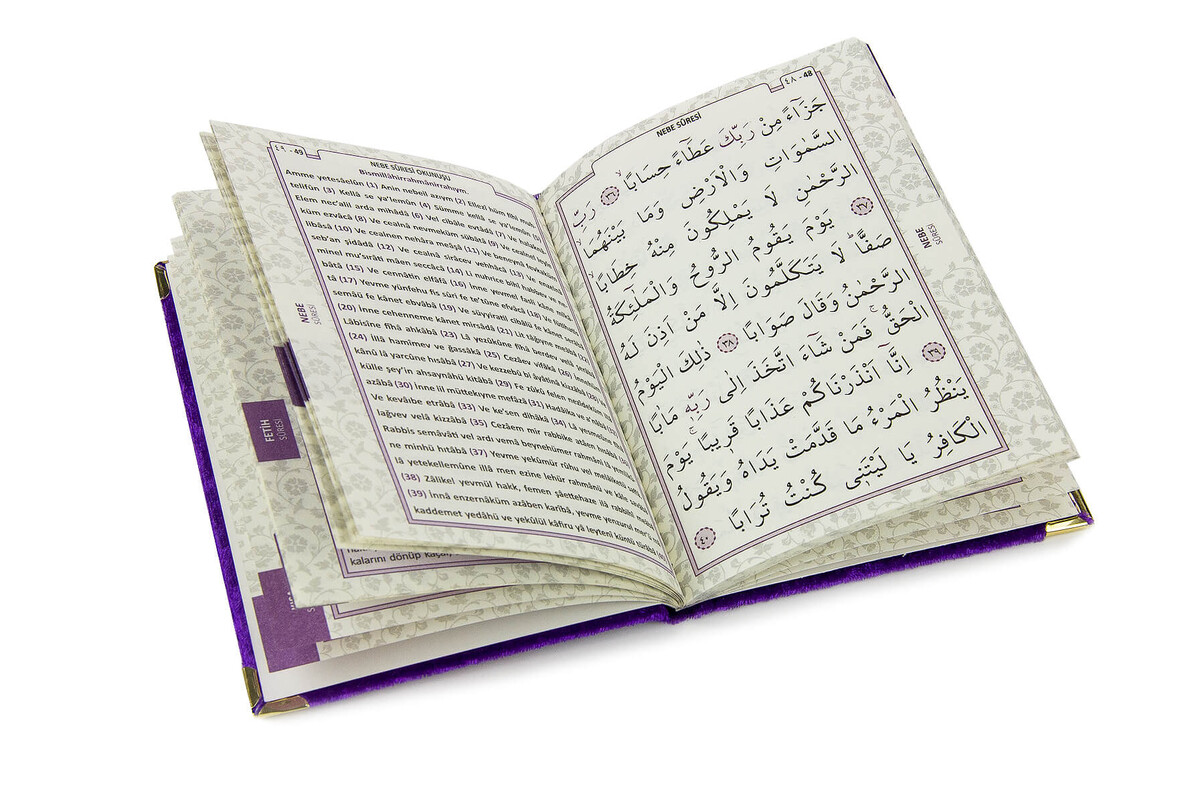 ٤٨ - 48
NEBE SÛRESİ
جَزَٓاءً مِنْ رَبِّكَ عَطَٓاءً حِسَابًاۙ ﴿٣٦﴾ رَبِّ
السَّمٰوَاتِ وَالْاَرْضِ وَمَا بَيْنَهُمَا
الرَّحْمٰنِ لَا يَمْلِكُونَ مِنْهُ خِطَابًاۚ
﴿٣٧﴾ يَوْمَ يَقُومُ الرُّوحُ وَالْمَلٰٓئِكَةُ
صَفًّاۜ لَا يَتَكَلَّمُونَ اِلَّا مَنْ اَذِنَ لَهُ
الرَّحْمٰنُ وَقَالَ صَوَابًا ﴿٣٨﴾ ذٰلِكَ الْيَوْمُ
الْحَقُّۚ فَمَنْ شَٓاءَ اتَّخَذَ اِلٰى رَبِّه۪ مَاٰبًا
﴿٣٩﴾ اِنَّٓا اَنْذَرْنَاكُمْ عَذَابًا قَر۪يبًاۚ يَوْمَ
يَنْظُرُ الْمَرْءُ مَا قَدَّمَتْ يَدَاهُ وَيَقُولُ
الْكَافِرُ يَا لَيْتَن۪ى كُنْتُ تُرَابًا ﴿٤٠﴾
NEBE
SÛRESİ
٤٩ - 49
NEBE SÛRESİ OKUNUŞU
Bismillâhirrahmânirrahıym.
Amme yetesâelûn (1) Anin nebeil azıym (2) Ellezî hüm fîhi muh
telifûn (3) Kellâ se ya'lemûn (4) Sümme kellâ se ya'lemûn
Elem nec'alil arda mihâdâ (6) Vel cibâle evtâdâ (7) Ve halaknâ
küm ezvâcâ (8) Ve cealnâ nevmeküm sübâtâ (9) Ve cealnel leyle
libâsâ (10) Ve cealnen nehâra meâşâ (11) Ve beneynâ fevkaküm
seb'an şidâdâ (12) Ve cealnâ sirâcev vehhâcâ (13) Ve enzelnâ
minel mu'sırâti mâen seccâcâ (14) Li nuhrice bihî habbev ve ne
bâtâ (15) Ve cennâtin elfâfâ (16) İnne yevmel fasli kâne mîkâ
tâ (17) Yevme yünfehu fis sûri fe te'tûne efvâcâ (18) Ve fütihatis
semâü fe kânet ebvâbâ (19) Ve süyyiratil cibâlü fe kânet serâbâ
(20) İnne cehenneme kânet mirsâdâ (21) Lit tâğıyne meâbâ
Lâbisîne fîhâ ahkâbâ (23) Lâ yezûkûne fîhâ berdev velâ şerâbâ
(24) İllâ hamîmev ve ğassâkâ (25) Cezâev vifâkâ (26) İnnehüm
kânû lâ yarcûne hısâbâ (27) Ve kezzebû bi âyâtinâ kizzâbâ (28)
külle şey'in ahsaynâhü kitâbâ (29) Fe zûkû felen nezîdeküm
azâbâ (30) İnne lil müttekıyne mefâzâ (31) Hadâika ve a'nâbâ
Ve kevâıbe etrâbâ (33) Ve ke'sen dihâkâ (34) Lâ yesmeûne fîhâ
lağvev velâ kizzâbâ (35) Cezâem mir rabbike atâen hısâbâ
Rabbis semâvâti vel ardı vemâ beynehümer rahmâni lâ
ne minhü hıtâbâ (37) Yevme yekûmür rûhu vel melâiketü
lâ yetekellemûne illâ men ezine lehür rahmânü ve kâle savâbâ
(38) Zâlikel yevmül hakk, femen şâettehaze ilâ rabbihî meâbâ
(39) İnnâ enzernâküm azâben karîbâ, yevme yenzurul mer'ü
kaddemet yedâhü ve yekûlül kâfiru yâ leytenî küntü türâbâ
NEBE
SÛRESİ
FETİH
SÛRESİ
kalarını dönüp kaçar,